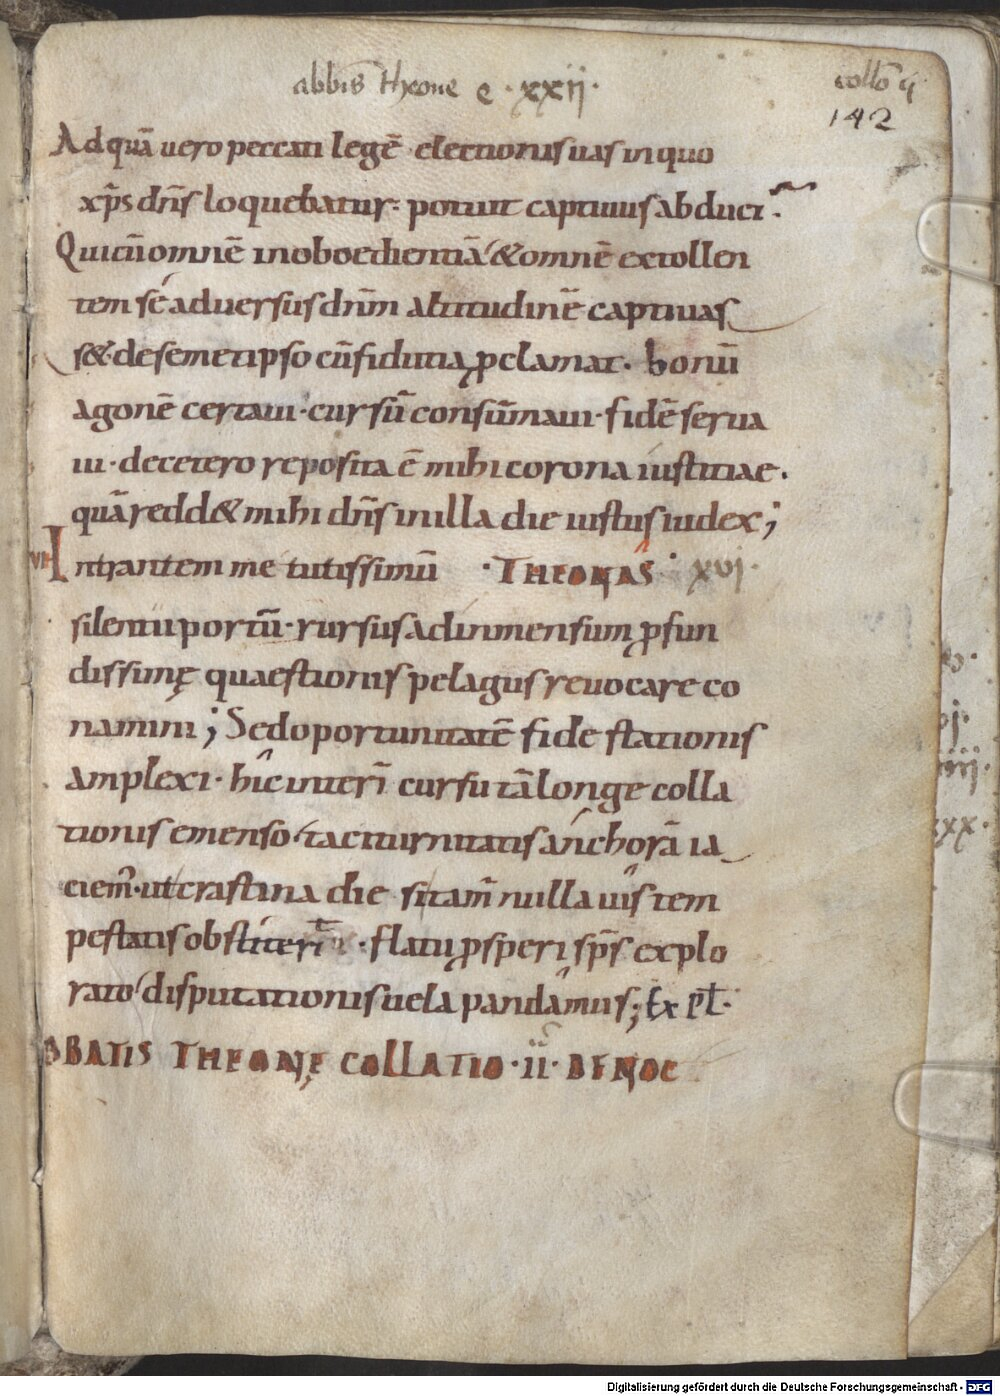 abb̄is theone c · xxij·
coll̄o ij
142
Ad quā uero peccati legē electionis uas in quo
xp̄s dn̄s loquebatur· potuit captiuus abduci·
Qui cū omnē inoboedientiā & omnē extollen
tem sé aduersus dn̄m altitudinē captiuas
s& de semetipso cū fiducia ꝓclamat· bonū
agonē certaui· cursū consūmaui· fidē serua
ui· de cetero reposita ē mihi corona iustitiae·
quā redd& mihi dn̄s in illa die iustus iudex;
VII Intrantem me tutissimū · THEONAS · xvj·
silentii portū· rursus ad inmensum ꝓfun
dissimę quaestionis pelagus reuocare co
namini; Sed oportunitatē fide stationis
amplexi· hic interī cursu tā longe colla
tionis emenso· taciturnitatis anchorā ia
ciem̄· ut crastina die si tam̄ nulla uis tem
pestatis obstiteri · flatu ꝓsperi sp̄s explo
rato disputationis uela pandamus; Expl̄·
BBATIS THEONĘ COLLATIO · II · DE NOC
Digitalisierung gefördert durch die Deutsche Forschungsgemeinschaft - DFG